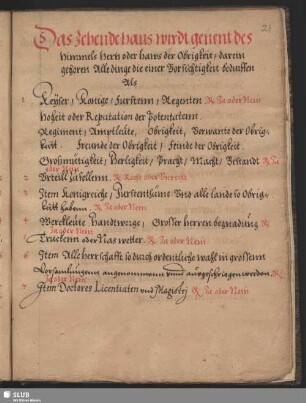 21
Das Zehende haus wirdt genent des
Himmels Herr oder haus der Obrigkeit, darein
gehören Alle dinge die einer Vorsichtigkeit bedurffen
Als
1 Keyser, Konige, furstenn, Regenten R Ja oder Nein
Hoheit oder Reputation der Potentatenn.
Regiment, Amptleüte, Obrigkeit, Verwante der Obrig-
keit. freunde der Obrigkeit, feinde der Obrigkeit.
Grosmütigkeit, Herligkeit, Pracht, Macht, Bestandt R Ja
oder Nein
2 Urteill zufellenn. R Recht oder Unrecht
3 Item Konigreiche, Fürstenthüme Und alle lande so Obrig-
keit habenn R Ja oder Nein
4 Werckleüte, Handtwerge, Grosser herren begnadung R
Ja oder Nein
5 oder Nas wetter R Ja oder Nein
6 Item Alle herrschafft so durch ordentliche wahl in grossenn
Versamlungenn angenommenn unnd ausgeschriegen werden R
Ja oder Nein
7 Item Doctores Licentiaten und Magistri R Ja oder Nein
SLUB